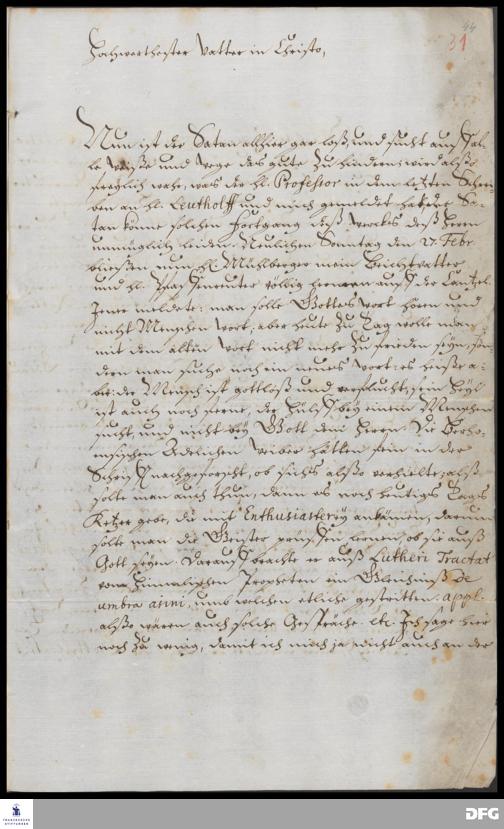 44
31
Hochwerthester Vatter in Christo,
Nun ist der Satan allhier gar loß, und sucht auf Sal-
le weiße und wege das gute zu hindern: wird alßo
freylich wahr, was der H. Professor in dem letzten Schrei-
ben an H. Leutholff und mich gemeldet hat der Sa-
tan könne solchen fortgang deß wercks deß Herrn
unmüglich leiden. Neulichen Sonntag den 27. Febr.
ließen nun H. Mühlberger mein Beichtvatter
und H. völlig herauß auff der Cantzel.
Jener meldete: man solle Gottes wort hören und
nicht Menschen wort, aber heute zu Tag wolle man
mit dem alten wort nicht mehr zu frieden seyn, son-
dern man suche noch ein neues wort: es heiße a-
ber: der Mensch ist gottloß und verflucht, sein Heyl
ist auch noch ferne, der Hülff bey einem Menschen
sucht, und nicht bey Gott dem Herrn. Die Berho-
ensischen Edelichen weiber hätten fein in der
Schrifft nachgeforscht, ob sichs alßo verhielte: alßo
solte man auch thun, dann es noch heutiges Tages
Ketzer gebe, die mit Enthusiasterey ankämen, darum
solte man die Geister prüffen lernen, ob sie auß
Gott seyen. Darauff brachte er auß Lutheri Tractat
von Himmlischen Propheten ein Gleichnuß de
umbra asini, umb welchen etliche gestritten. appl.
alßo wären auch solche Gespräche. etc. Ich sage hier
noch zu wenig, damit ich mich ja nicht auch an der
FRANCKESCHE STIFTUNGEN
DFG